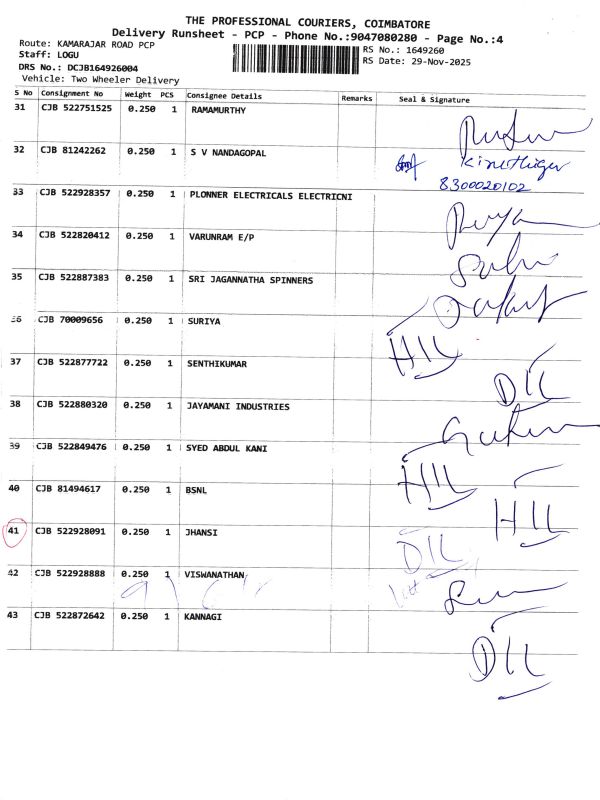 THE PROFESSIONAL COURIERS, COIMBATORE
Delivery Runsheet - PCP - Phone No.:9047080280 - Page No.:4
Route: KAMARAJAR ROAD PCP
Staff: LOGU
DRS No.: DCJB164926004
Vehicle: Two Wheeler Delivery
RS No.: 1649260
RS Date: 29-Nov-2025
S No Consignment No Weight PCS Consignee Details Remarks Seal & Signature
31 CJB 522751525 0.250 1 RAMAMURTHY
32 CJB 81242262 0.250 1 S V NANDAGOPAL
8300020102
33 CJB 522928357 0.250 1 PLONNER ELECTRICALS ELECTRICNI
34 CJB 522820412 0.250 1 VARUNRAM E/P
35 CJB 522887383 0.250 1 SRI JAGANNATHA SPINNERS
36 CJB 70009656 0.250 1 SURIYA
37 CJB 522877722 0.250 1 SENTHIKUMAR
38 CJB 522880320 0.250 1 JAYAMANI INDUSTRIES
39 CJB 522849476 0.250 1 SYED ABDUL KANI
40 CJB 81494617 0.250 1 BSNL
41 CJB 522928091 0.250 1 JHANSI
42 CJB 522928888 0.250 1 VISWANATHAN
43 CJB 522872642 0.250 1 KANNAGI